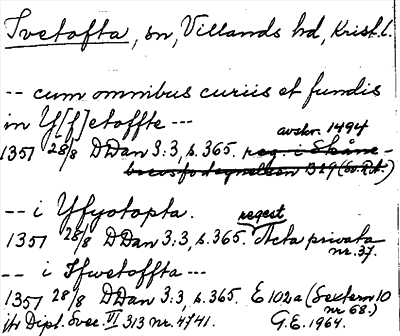 Ivetofta, sn, Villands hd, Krist.l.
-- cum omnibus curiis et fundis
in Y[f]etoffte ---
avskr. 1494
1357 28/8 DDan 3:3, s. 365. reg. i Skåne-
brevsförteckn. 1329 (Sv.R.A.)
-- i Yffyotapta.
regest
1357 28/8 DDan 3:3, s. 365. Acta privata
nr. 37.
-- i Ifwetoffta ---
1357 28/8 DDan 3:3, s. 365. E 102a (Sextern 10
nr 68.)
jfr Dipl. Svec. VI 313 nr. 4741. G.E. 1964.